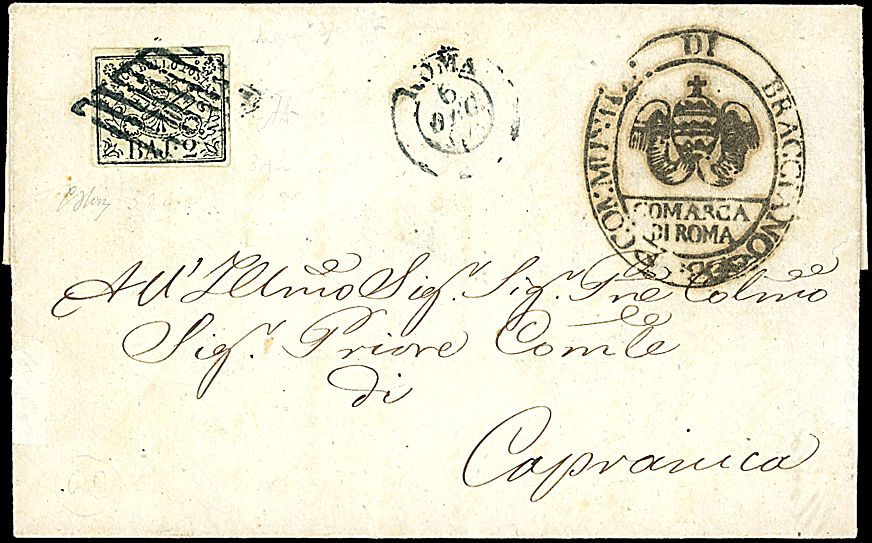 BAJ: 2
ROMA
6
DEC
DI BRACCIANO
COMARCA
DI ROMA
All'Illmo Sig. Sig. Pne Colmo
Sig. Priore Comle
di
Capranica